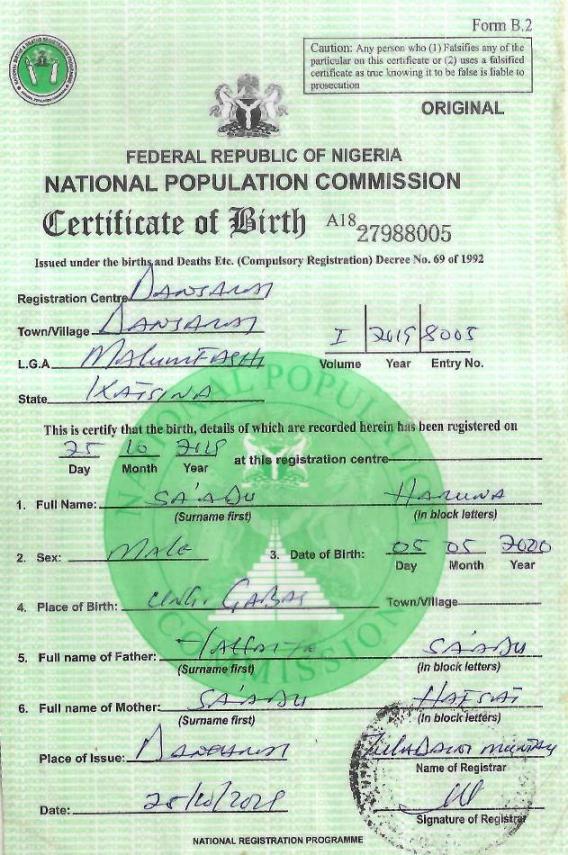 Form B.2
Caution: Any person who (1) Falsifies any of the
particular on this certificate or (2) uses a falsified
certificate as true knowing it to be false is liable to
prosecution
ORIGINAL
FEDERAL REPUBLIC OF NIGERIA
NATIONAL POPULATION COMMISSION
Certificate of Birth A18 27988005
Issued under the births and Deaths Etc. (Compulsory Registration) Decree No. 69 of 1992
Registration Centre
Town/Village
L.G.A MALUMFASHI I 2019 8005
Volume Year Entry No.
State KATSINA
This is certify that the birth, details of which are recorded herein has been registered on
25 10 2019 at this registration centre
Day Month Year
1. Full Name: SA'ADU HARUNA
(Surname first) (In block letters)
2. Sex: Male 3. Date of Birth: 05 05 2020
Day Month Year
4. Place of Birth: UNG. GABAS Town/Village
5. Full name of Father: SA'ADU
(Surname first) (In block letters)
6. Full name of Mother: SA'ADU HAFSAT
(Surname first) (In block letters)
Place of Issue:
Name of Registrar
Date: 25/10/2019
Signature of Registrar
NATIONAL REGISTRATION PROGRAMME
NATIONAL POPULATION COMMISSION